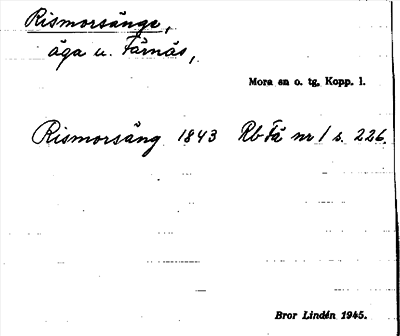 Rismorsänge,
äga u. Färnäs,
Mora sn o. tg, Kopp. l.
Rismorsäng 1843 Rb Fä nr 1 s. 226.
Bror Lindén 1945.